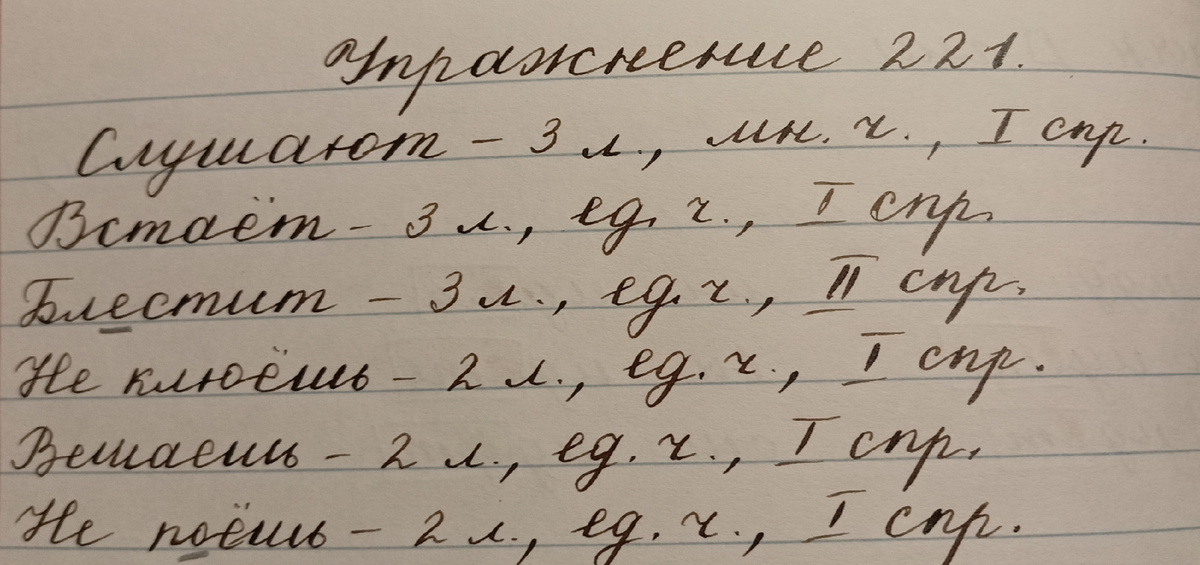 Упражнение 221.
Слушают - 3 л., мн. ч., I спр.
Встаёт - 3 л., ед. ч., I спр.
Блестит - 3 л., ед. ч., II спр.
Не клюёшь - 2 л., ед. ч., I спр.
Вешаешь - 2 л., ед. ч., I спр.
Не поёшь - 2 л., ед. ч., I спр.